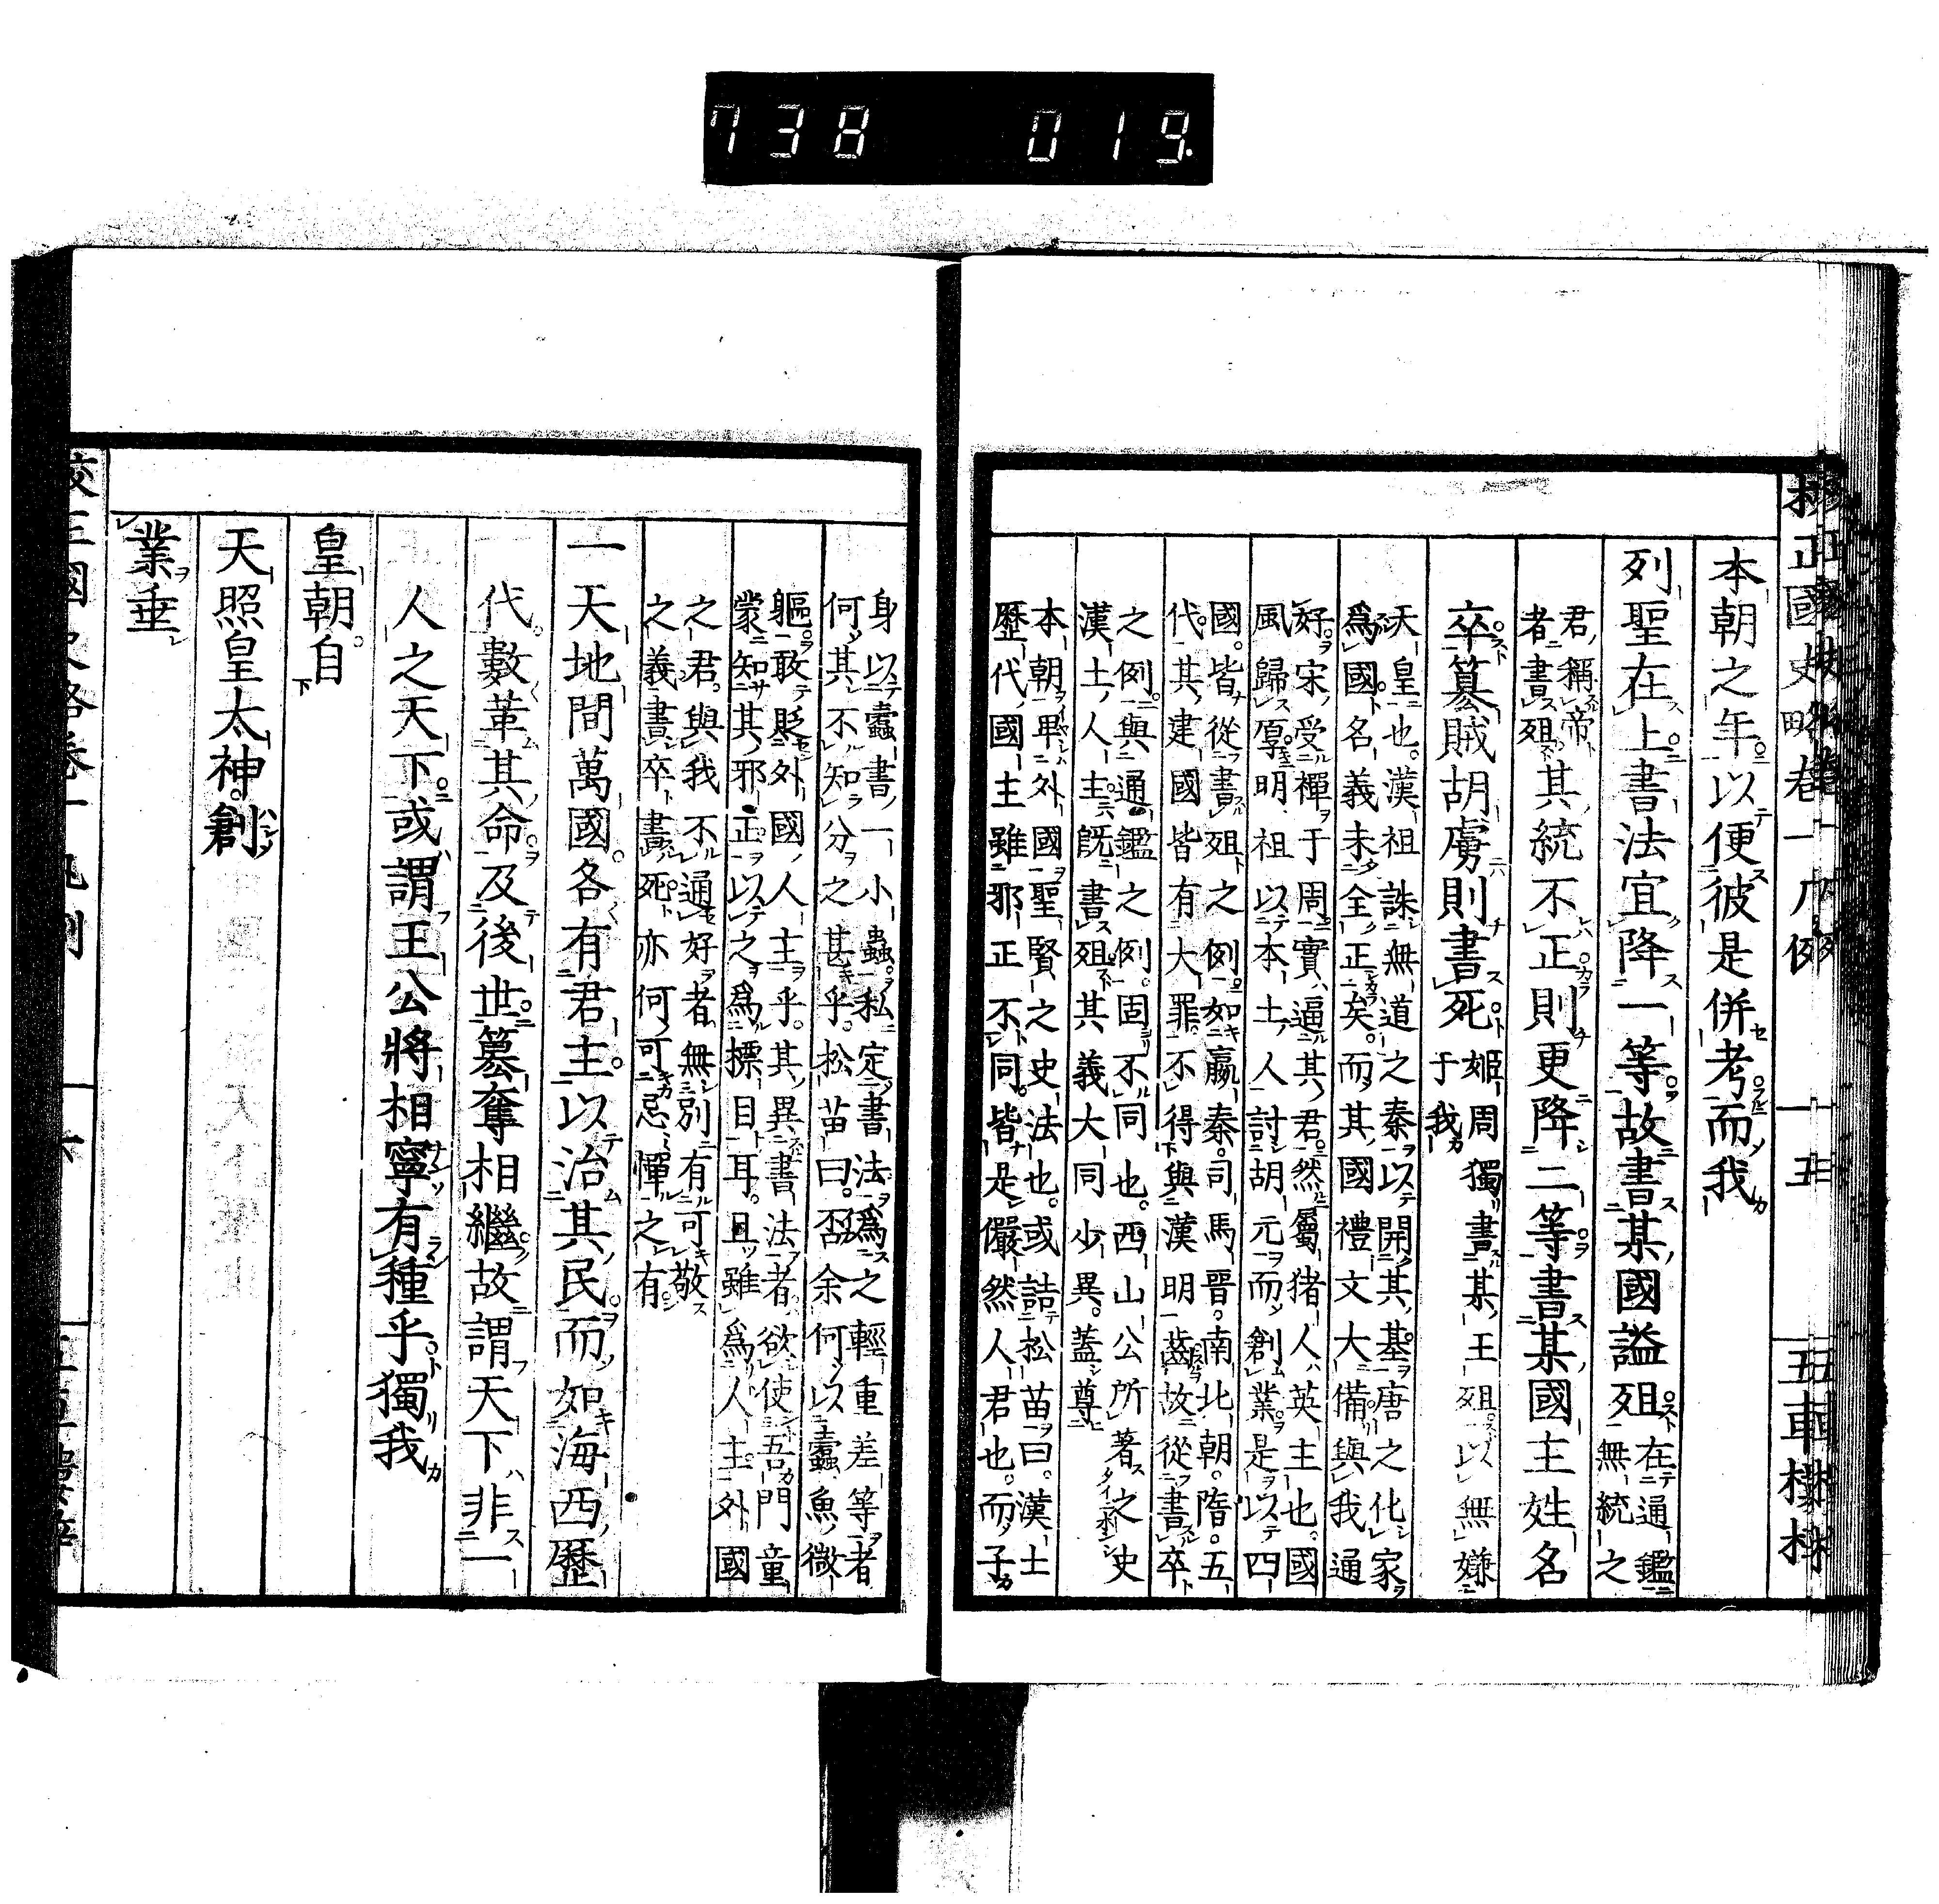 738 019
校正國史略卷一 凡例 一 五 五車樓梓
本朝之年以便彼是併考而我
列聖在上書法宜降一等故書某國謚殂在通鑑無統之
君稱帝者書殂其統不正則更降二等書某國主姓名
卒簒賊胡虜則書死姬周獨書某王殂以無嫌于我
天皇也漢祖誅無道之秦以開其基唐之化家
爲國名義未全正矣而其國禮文大備與我通
好宋受禪于周實逼其君然屬猪人英主也國
風歸厚明祖以本土人討胡元而創業是以四
國皆從書殂之例如嬴秦司馬晉南北朝隋五
代其建國皆有大罪不得與漢明齒故從書卒
之例與通鑑之例固不同也西山公所著之史
漢土人主旣書殂其義大同少異蓋尊
本朝卑外國聖賢之史法也或詰松苗曰漢土
歷代國主雖邪正不同皆是儼然人君也而子
身以蠹書一小蟲私定書法僞之輕重差等者
何其不知分之甚乎松苗曰否余何以蠹魚微
軀敢貶外國人主乎其異書法者欲使吾門童
蒙知其邪正以之爲標目耳且雖爲人主外國
之君與我不通好者無別有可敬
之義書卒書死亦何可忌憚之有
一天地間萬國各有君主以治其民而如海西歷
代數革其命及後世簒奪相繼故謂天下非一
人之天下或謂王公將相寧有種乎獨我
皇朝自
天照皇太神創
業垂